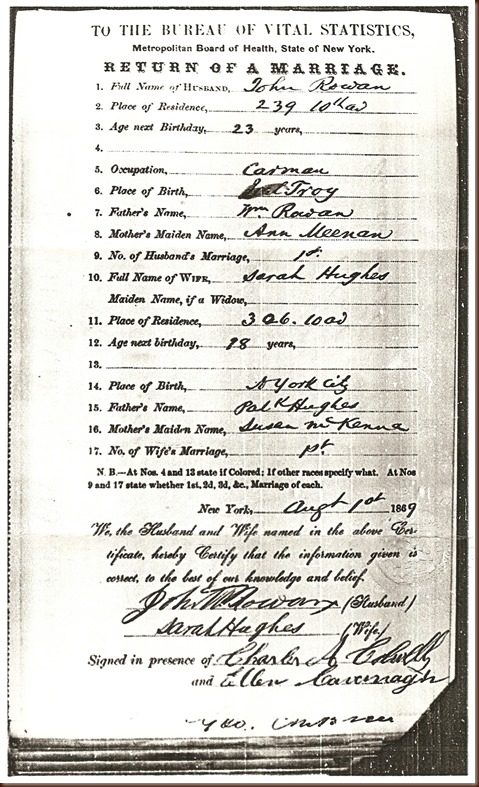 TO THE BUREAU OF VITAL STATISTICS,
Metropolitan Board of Health, State of New York.
RETURN OF A MARRIAGE.
1. Full Name of HUSBAND, John Rowan
2. Place of Residence, 239 10th av
3. Age next Birthday, 23 years,
4.
5. Occupation, Carman
6. Place of Birth, Troy
7. Father's Name, Wm Rowan
8. Mother's Maiden Name, Ann Meenan
9. No. of Husband's Marriage, 1st.
10. Full Name of WIFE, Sarah Hughes
Maiden Name, if a Widow,
11. Place of Residence, 306. 10 av
12. Age next birthday, 18 years,
13.
14. Place of Birth, N York City
15. Father's Name, Patk Hughes
16. Mother's Maiden Name, Susan McKenna
17. No. of Wife's Marriage, 1st
N. B.—At Nos. 4 and 13 state if Colored; If other races specify what. At Nos
9 and 17 state whether 1st, 2d, 3d, &c., Marriage of each.
New York, Augt 1st 1869
We, the Husband and Wife named in the above Cer-
tificate, hereby Certify that the information given is
correct, to the best of our knowledge and belief.
John Rowan (Husband)
Sarah Hughes (Wife)
Signed in presence of Charles A
and Ellen Cavenagh